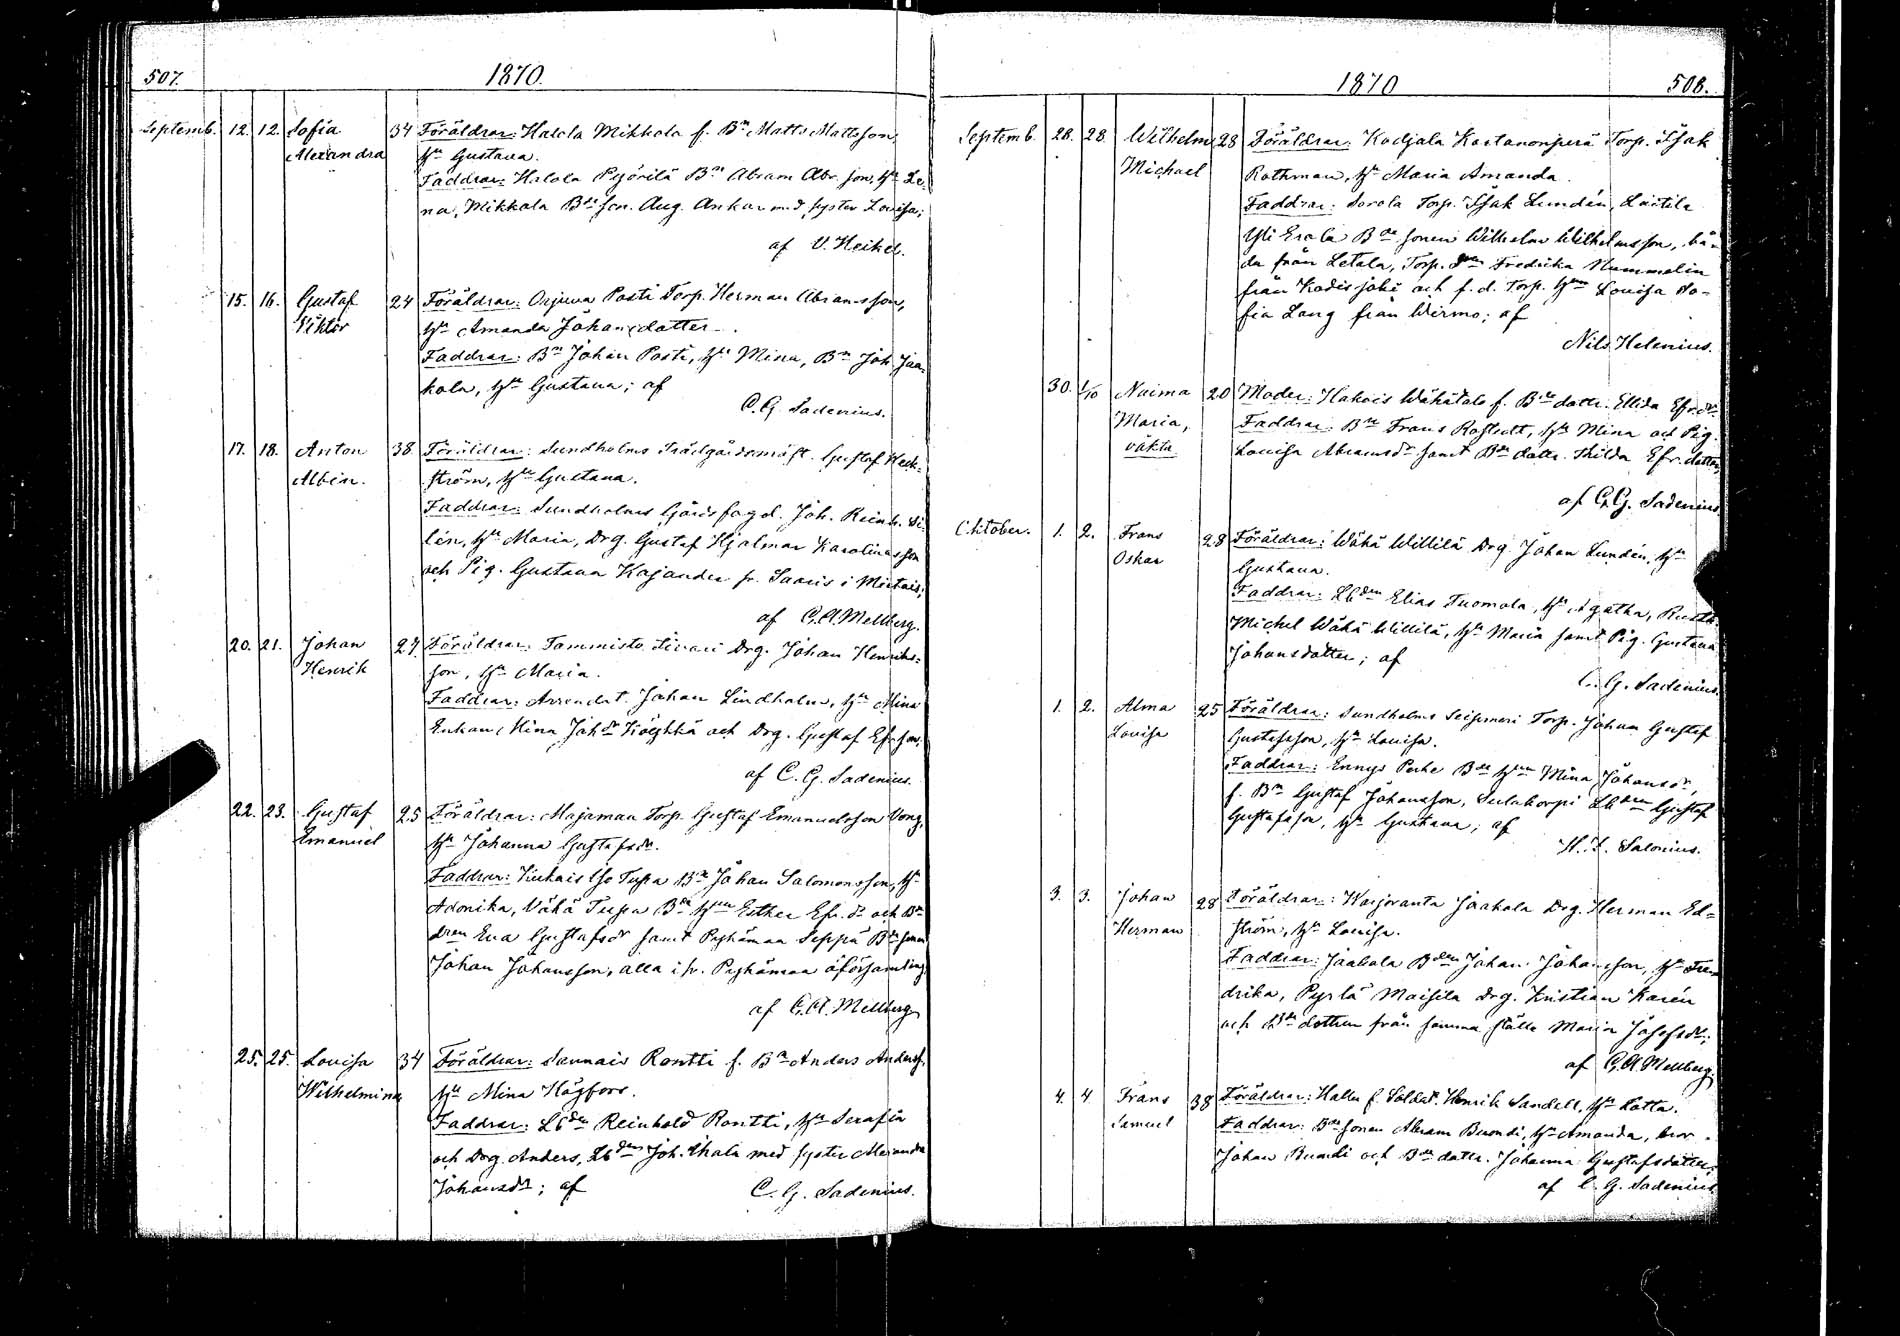 507. 1870.
Septemb. 12. 12. Sofia 34 Föräldrar: Halola Mikkola f. Bn Matts Mattsson,
Alexandra hu Gustava.
Faddrar: Halola Pejörilä Bn Abram Abr. son, hu Le-
na, Mikkola Bde son. Aug. Ankar med syster Lovisa;
af V. Heikel.
15. 16. Gustaf 24 Föräldrar: Orjuva Posti Torp. Herman Abramsson,
Viktor hu Amanda Johansdotter.
Faddrar: Bn Johan Posti, hu Mina, Bn Joh. Jaa-
kola, hu Gustava; af
C. G. Sadenius.
17. 18. Anton 38 Föräldrar: Sundholms Trädgårdsmäst. Gustaf Heck-
Albin. ström, hu Gustava.
Faddrar: Sundholms Gårdsfogd. Joh. Reinh. Si-
lén, hu Maria, Drg. Gustaf Hjalmar Karolinasson
och Pig. Gustava Kajander fr. Saaris i Mietois;
af C. A. Mellberg.
20. 21. Johan 27 Föräldrar: Tammisto Sivari Drg. Johan Henriks-
Henrik son, hu Maria.
Faddrar: Arrendat. Johan Lindholm, hu Mina
Enkan Mina Johdr och Drg. Gustaf Efr. son;
af C. G. Sadenius.
22. 23. Gustaf 25 Föräldrar: Majamaa Torp. Gustaf Emanuelsson Vong,
Emanuel hu Johanna Gustafsdr.
Faddrar: Kukais Iso Tupa Bn Johan Salomonsson, hu
Adonika, Vähä Tupa Bde hun Esther Efr. dr och Bde
dren Eva Gustafsdr samt Pyhämaa Seppä Bde sonen
Johan Johansson, alla i fr. Pyhämaa öförsamling
af C. A. Mellberg
25. 25. Lovisa 34 Föräldrar: Sannais Rontti f. Bn Anders Anderss.
Wilhelmina hu Mina Högfors.
Faddrar: Lbden Reinhold Rontti, hu Serafia
och Drg. Anders, Lbden Joh. Ahala med syster Alexandra
Johansdr; af C. G. Sadenius.
1870 508.
Septemb. 28. 28. Wilhelm 28 Föräldrar: Kodjala Kastanonperä Torp. Isak
Michael Rothman, hu Maria Amanda.
Faddrar: Sorola Torp. Isak Lundén, Laitila
Yli Erola Bde sonen Wilhelm Wilhelmsson, bå-
da från Letala, Torp. Fredrika Nummelin
från Kodisjoki och f. d. Torp. hun Lovisa So-
fia Lang från Wirmo; af
Nils Helenius.
30. 1/10 Naima 20 Moder: Hakois Wähätalo f. Bde dottr. Ellida Efr. dr.
Maria, Faddrar: Bn Frans Rostedt, hu Mina och Pig.
oäkta Lovisa Abramsdr samt Bde dottr. Hilda Efr. dotter;
af C. G. Sadenius
October. 1. 2. Frans 28 Föräldrar: Wähä Willilä Drg. Johan Lundén, hu
Oskar Gustava.
Faddrar: Lbden Elias Tuomola, hu Agatha, Rusth.
Michel Wähä Willilä, hu Maria samt Pig. Gustava
Johansdotter; af
C. G. Sadenius.
1. 2. Alma 25 Föräldrar: Sundholms Torp. Johan Gustaf
Lovisa Gustafsson, hu Lovisa.
Faddrar: Ennys Perhe Bde hun Mina Johansdr,
f. Bn Gustaf Johansson, Sulakorpi Lbden Gustaf
Gustafsson, hu Gustava; af
H. F. Salonius.
3. 3. Johan 28 Föräldrar: Warjoranta Jaakola Drg. Herman Ed-
Herman ström, hu Lovisa.
Faddrar: Jaakola Bden Johan Johansson, hu Fre-
drika, Pyrlä Maisila Drg. Kristian Karén
och Bde dottren från samma ställe Maria Josefsdr;
af C. A. Mellberg
4. 4 Frans 38 Föräldrar: Hallu f. Soldat. Henrik Sandell, hu Lotta.
Samuel Faddrar: Bde sonen Abram Buondi, hu Amanda, bror
Johan Buondi och Bde dottr. Johanna Gustafsdotter;
af C. G. Sadenius